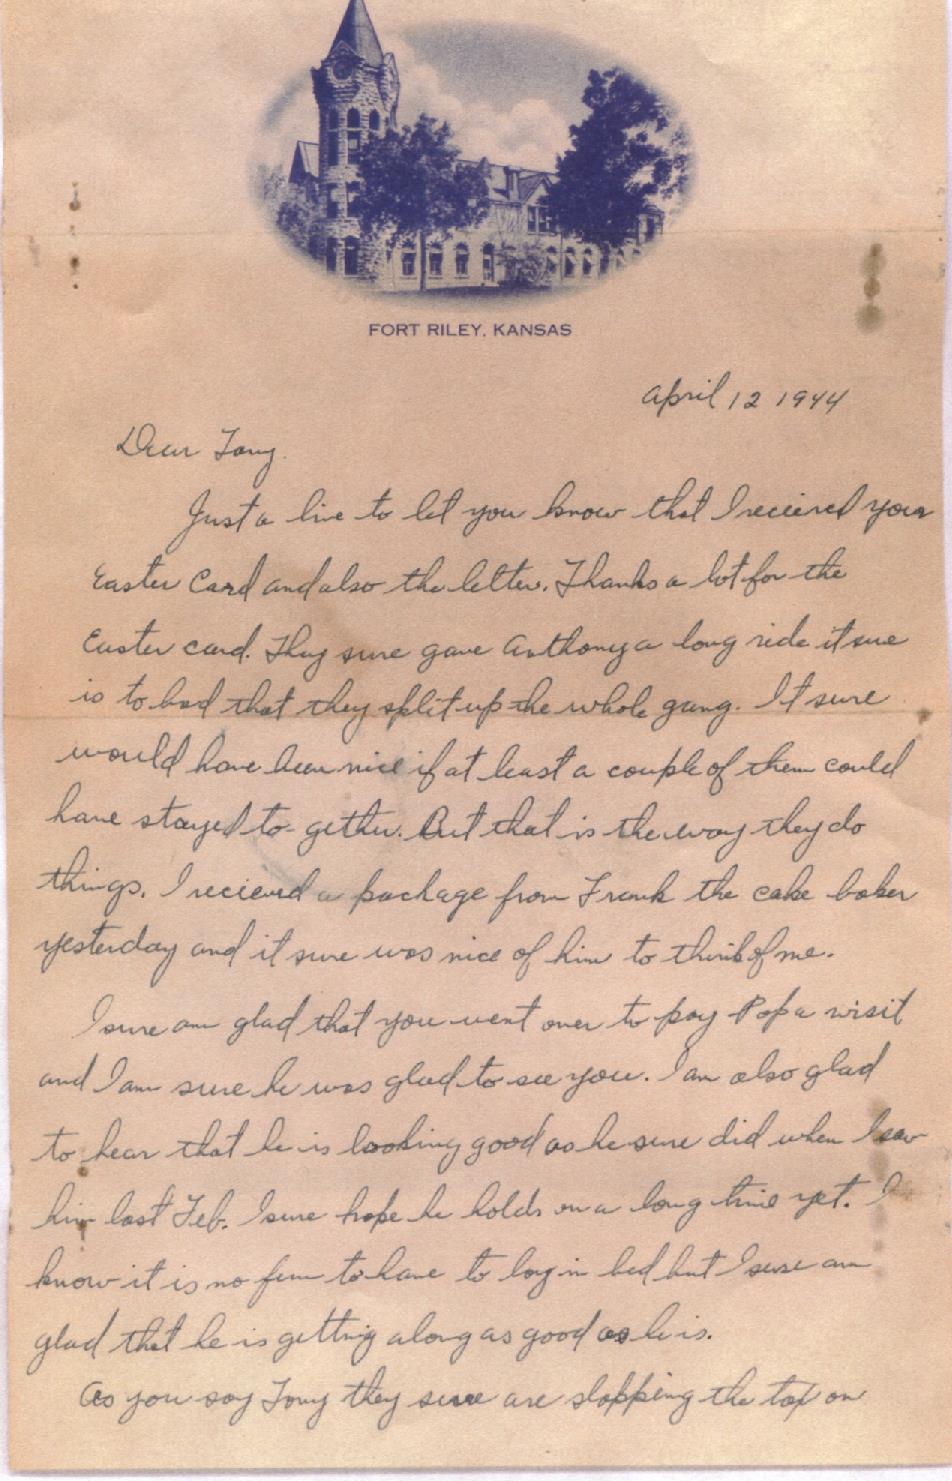 FORT RILEY, KANSAS
April 12 1944
Dear Tony.
Just a line to let you know that I recieved your
Easter Card and also the letter. Thanks a lot for the
Easter card. They sure gave Anthony a long ride it sure
is to bad that they split up the whole gang. It sure
would have been nice if at least a couple of them could
have stayed to-gether. But that is the way they do
things. I recieved a package from Frank the cake baker
yesterday and it sure was nice of him to think of me.
I sure am glad that you went over to pay Pop a visit
and I am sure he was glad to see you. I am also glad
to hear that he is looking good as he sure did when I saw
him last Feb. I sure hope he holds on a long time yet. I
know it is no fun to have to lay in bed but I sure am
glad that he is getting along as good as he is.
As you say Tony they sure are slapping the tax on